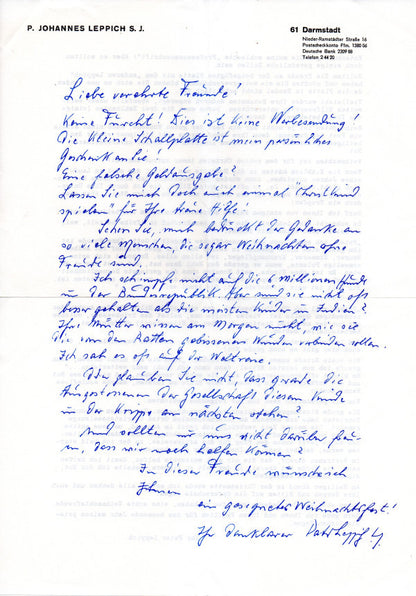 P. JOHANNES LEPPICH S. J.
61 Darmstadt
Nieder-Ramstädter Straße 16
Postscheckkonto Ffm. 1380 66
Deutsche Bank 2309 88
Telefon 2 44 20
Liebe verehrte Freunde!
Keine Furcht! Dies ist keine Werbesendung!
Die kleine Schallplatte ist mein persönliches
Geschenk an Sie!
Eine falsche Geldausgabe?
Lassen Sie mich doch auch einmal "Christkind
spielen" für Ihre treue Hilfe!
Sehen Sie, mich bedrückt der Gedanke an
so viele Menschen, die sogar Weihnachten ohne
Freude sind.
Ich schimpfe nicht auf die 6 Millionen Hunde
in der Bundesrepublik. Aber sind sie nicht oft
besser gehalten als die meisten Kinder in Indien?
Ihre Mütter wissen am Morgen nicht, wie sie
die von den Ratten gebissenen Wunden verbinden sollen.
Ich sah es oft auf der Weltreise.
Oder glauben Sie nicht, dass gerade die
Ausgestossenen der Gesellschaft diesem Kinde
in der Krippe am nächsten stehen?
Und sollten wir uns nicht darüber freu-
en, dass wir noch helfen können?
In dieser Freude wünsche ich
Ihnen
ein gesegnetes Weihnachtsfest!
Ihr dankbarer Pater Leppich SJ.